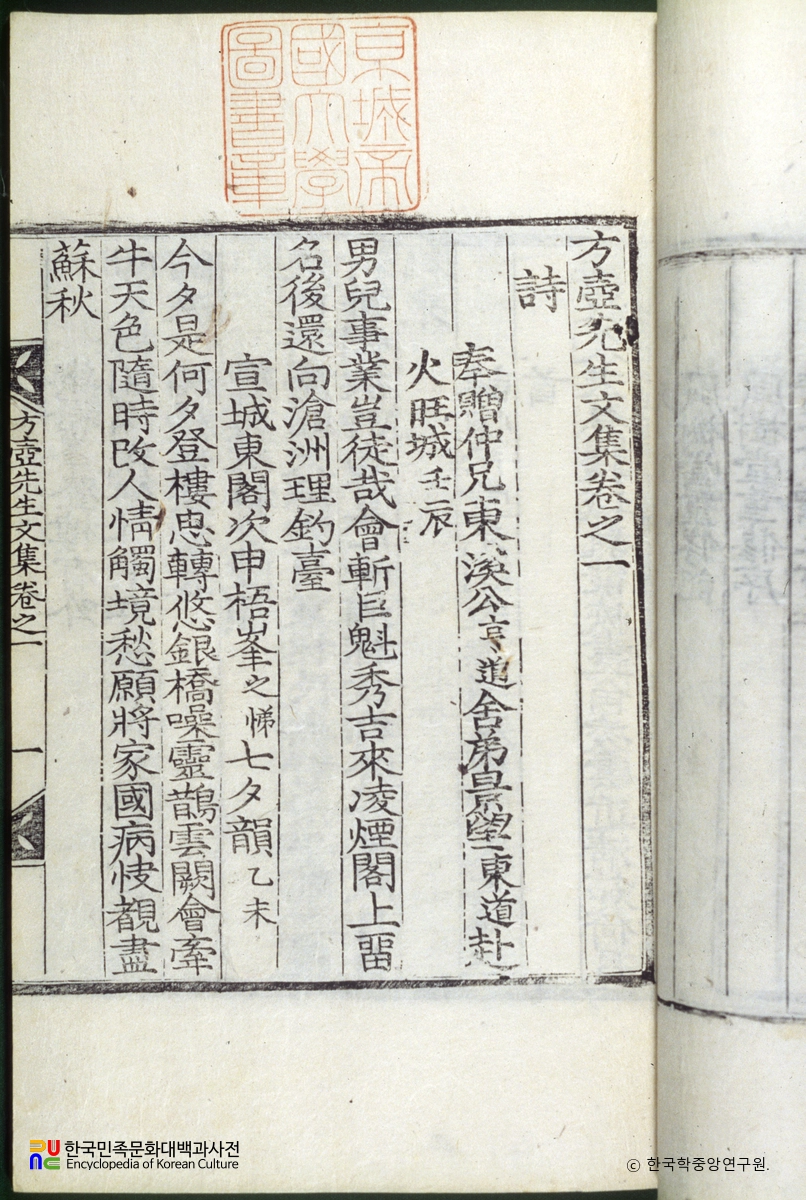 京城帝
國大學
圖書章
方壺先生文集卷之一
詩
奉贈仲兄東溪公亨道舍弟景望東道赴
火旺城壬辰
男兒事業豈徒哉會斬巨魁秀吉來凌煙閣上畱
名後還向滄洲理釣臺
宣城東閣次申梧峯之悌七夕韻乙未
今夕是何夕登樓思轉悠銀橋噪靈鵲雲闕會牽
牛天色隨時改人情觸境愁願將家國病快覩盡
蘇秋
方壺先生文集卷之一
一
한국민족문화대백과사전
Encyclopedia of Korean Culture
ⓒ 한국학중앙연구원.